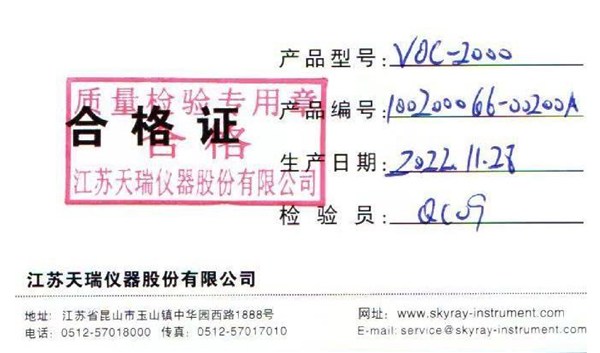 产品型号: VOC-2000
质量检验专用章
产品编号: 100200066-00200A
合格证
合格
生产日期: 2022.11.28
江苏天瑞仪器股份有限公司
检验员:
江苏天瑞仪器股份有限公司
地址: 江苏省昆山市玉山镇中华园西路1888号
网址: www.skyray-instrument.com
电话: 0512-57018000 传真: 0512-57017010
E-mail: service@skyray-instrument.com